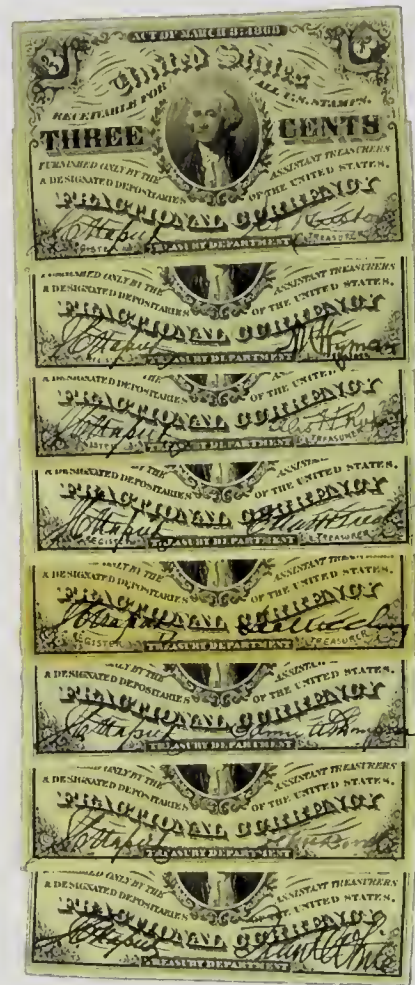 ACT OF MARCH 3: 1863
3 3
United States
RECEIVABLE FOR ALL U.S. STAMPS.
THREE CENTS
FURNISHED ONLY BY THE ASSISTANT TREASURERS
& DESIGNATED DEPOSITARIES OF THE UNITED STATES.
FRACTIONAL CURRENCY
REGISTER TREASURER
TREASURY DEPARTMENT
FURNISHED ONLY BY THE ASSISTANT TREASURERS
& DESIGNATED DEPOSITARIES OF THE UNITED STATES.
FRACTIONAL CURRENCY
Hyman
TREASURY DEPARTMENT
& DESIGNATED DEPOSITARIES OF THE UNITED STATES.
FRACTIONAL CURRENCY
TREASURER
TREASURY DEPARTMENT
ONLY BY THE ASSISTANT
& DESIGNATED DEPOSITARIES OF THE UNITED STATES.
FRACTIONAL CURRENCY
REGISTER TREASURER
TREASURY DEPARTMENT
ONLY BY THE ASSISTANT TREASURERS
& DESIGNATED DEPOSITARIES OF THE UNITED STATES.
FRACTIONAL CURRENCY
REGISTER TREASURER
TREASURY DEPARTMENT
ONLY BY THE ASSISTANT
& DESIGNATED DEPOSITARIES OF THE UNITED STATES.
FRACTIONAL CURRENCY
TREASURY DEPARTMENT
ONLY BY THE ASSISTANT TREASURERS
& DESIGNATED DEPOSITARIES OF THE UNITED STATES.
FRACTIONAL CURRENCY
TREASURY DEPARTMENT
FURNISHED ONLY BY THE ASSISTANT TREASURERS
& DESIGNATED DEPOSITARIES OF THE UNITED STATES.
FRACTIONAL CURRENCY
TREASURY DEPARTMENT